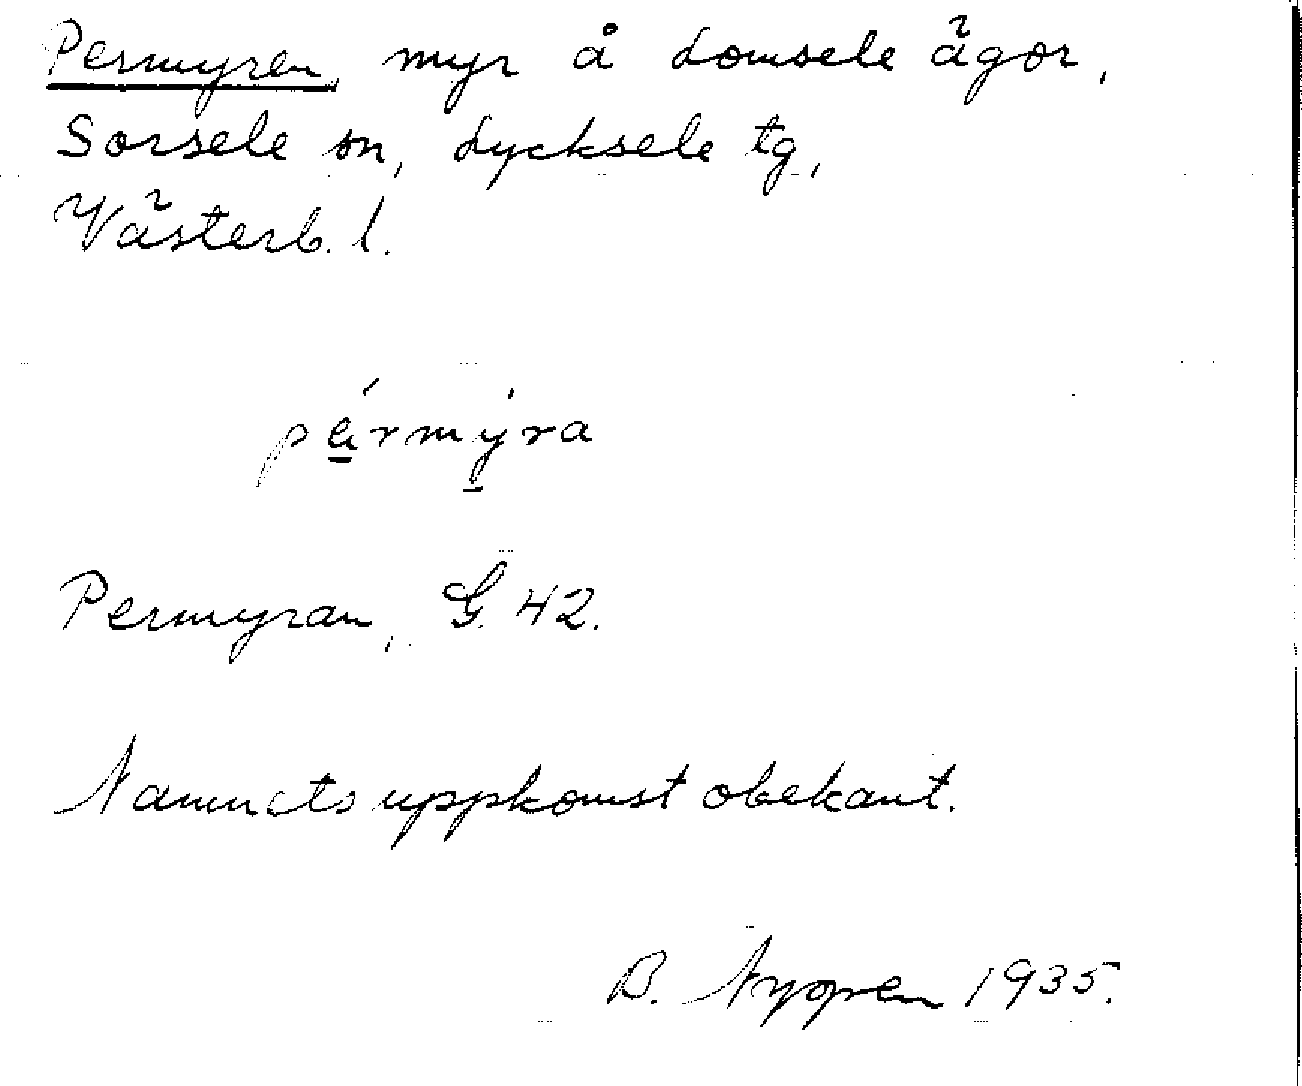 Permyren, myr å Lomsele ägor,
Sorsele sn, Lycksele tg,
Västerb. l.
pármýra
Permyran, G. 42.
Namnets uppkomst obekant.
B. 1935.